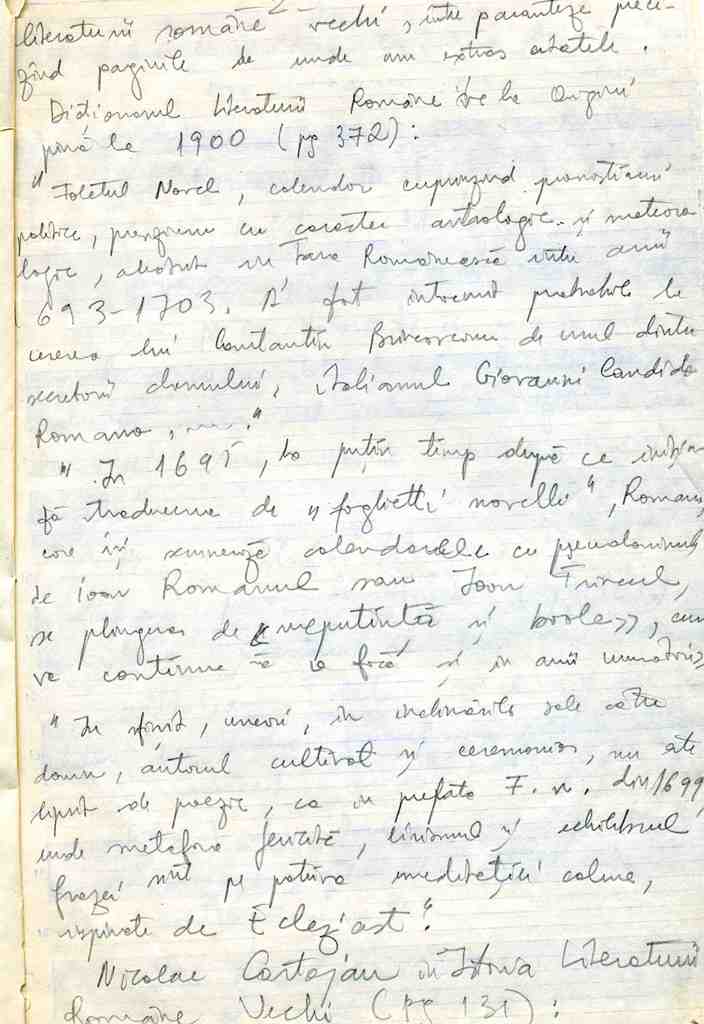 - 2 -
literaturii române vechi, între paranteze preci-
zînd paginile de unde am extras citatele.
Dicționarul Literaturii Române de la Origini
pînă la 1900 (pg 372):
"Foletul Novel, calendar cuprinzînd pronosticuri
politice, preziceri cu caracter astrologic și meteoro
logic, alcătuit în Țara Românească între anii
693-1703. A fost întocmit probabil la
cererea lui Constantin Brîncoveanu de unul dintre
secretarii domnului, italianul Giovanni Candido
Romano, ....."
"In 1695, la puțin timp după ce
traducerea de "foglietti novelli", Romano,
care își semnează calendarele cu pseudonimul
de Ioan Romanul sau Ioan Frîncul,
se plîngea de neputință și boale>>, cum
va continua s-o facă și în anii următori>>
"In sfîrșit, uneori, în închinările sale către
domn, autorul cultivat și ceremonios, nu este
lipsit de poezie, ca în prefața F. n. din 1699,
unde metafora fericită, lirismul și echilibrul
frazei sînt pe potriva meditației calme,
inspirate de Eclesiast".
Nicolae Cartojan în Istoria Literaturii
Române Vechi (pg 131):